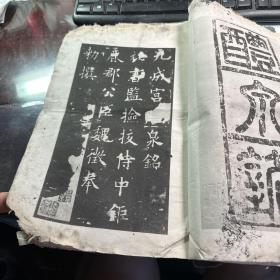 九成宮 泉銘
祕書監撿挍侍中鉅
鹿郡公臣魏徵奉
勑撰
醴泉銘